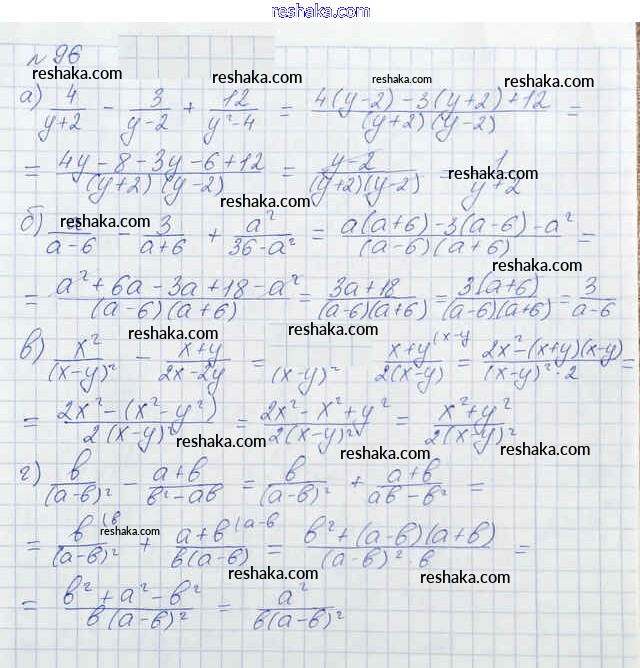 reshaka.com
№ 96
reshaka.com reshaka.com reshaka.com reshaka.com
а) 4/(y+2) - 3/(y-2) + 12/(y²-4) = (4(y-2)-3(y+2)+12)/((y+2)(y-2)) =
reshaka.com reshaka.com
= (4y-8-3y-6+12)/((y+2)(y-2)) = (y-2)/((y+2)(y-2)) = 1/(y+2)
reshaka.com reshaka.com
б) /(a-6) - 3/(a+6) + a²/(36-a²) = (a(a+6)-3(a-6)-a²)/((a-6)(a+6)) =
reshaka.com reshaka.com
= (a²+6a-3a+18-a²)/((a-6)(a+6)) = (3a+18)/((a-6)(a+6)) = (3(a+6))/((a-6)(a+6)) = 3/(a-6)
reshaka.com reshaka.com
в) x²/(x-y)² - (x+y)/(2x-2y) = (x-y)² (x+y)/(2(x-y)) (x-y = (2x²-(x+y)(x-y))/((x-y)²·2) =
reshaka.com reshaka.com
= (2x²-(x²-y²))/(2(x-y)²) = (2x²-x²+y²)/(2(x-y)²) = (x²+y²)/(2(x-y)²)
reshaka.com reshaka.com
г) b/(a-b)² - (a+b)/(b²-ab) = b/(a-b)² + (a+b)/(ab-b²) =
reshaka.com reshaka.com
= b/(a-b)² (b + (a+b)/(b(a-b)) (a-b = (b²+(a-b)(a+b))/((a-b)²·b) =
reshaka.com reshaka.com
= (b²+a²-b²)/(b(a-b)²) = a²/(b(a-b)²)